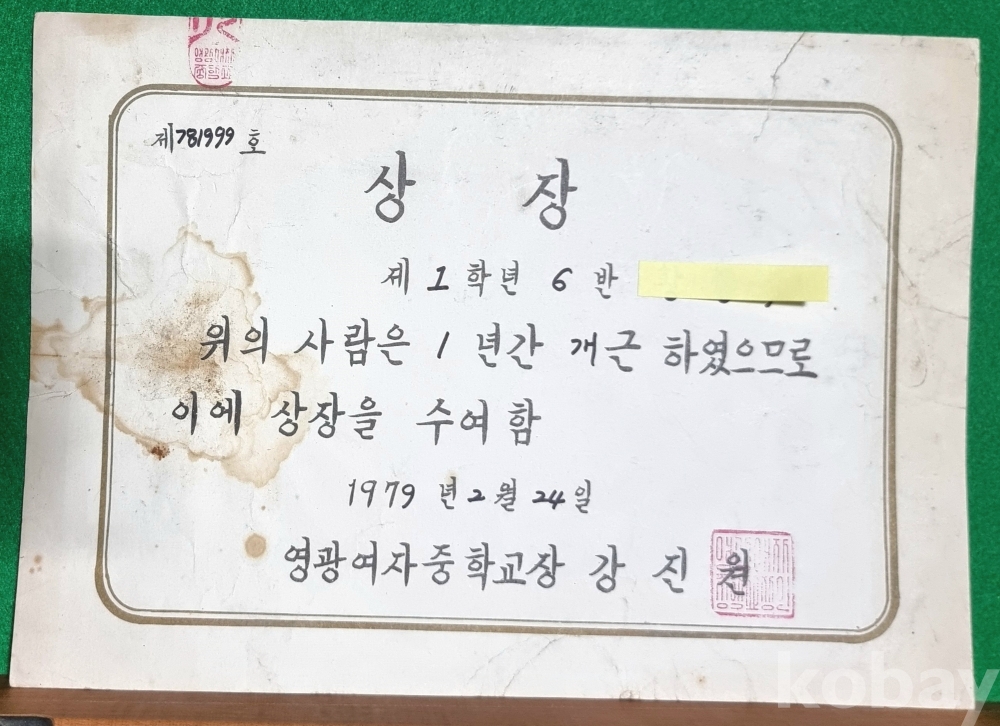 제781999호
상 장
제 1 학년 6 반
위의 사람은 1 년간 개근 하였으므로
이에 상장을 수여함
1979 년 2 월 24 일
영광여자중학교장 강 진 원
kobay